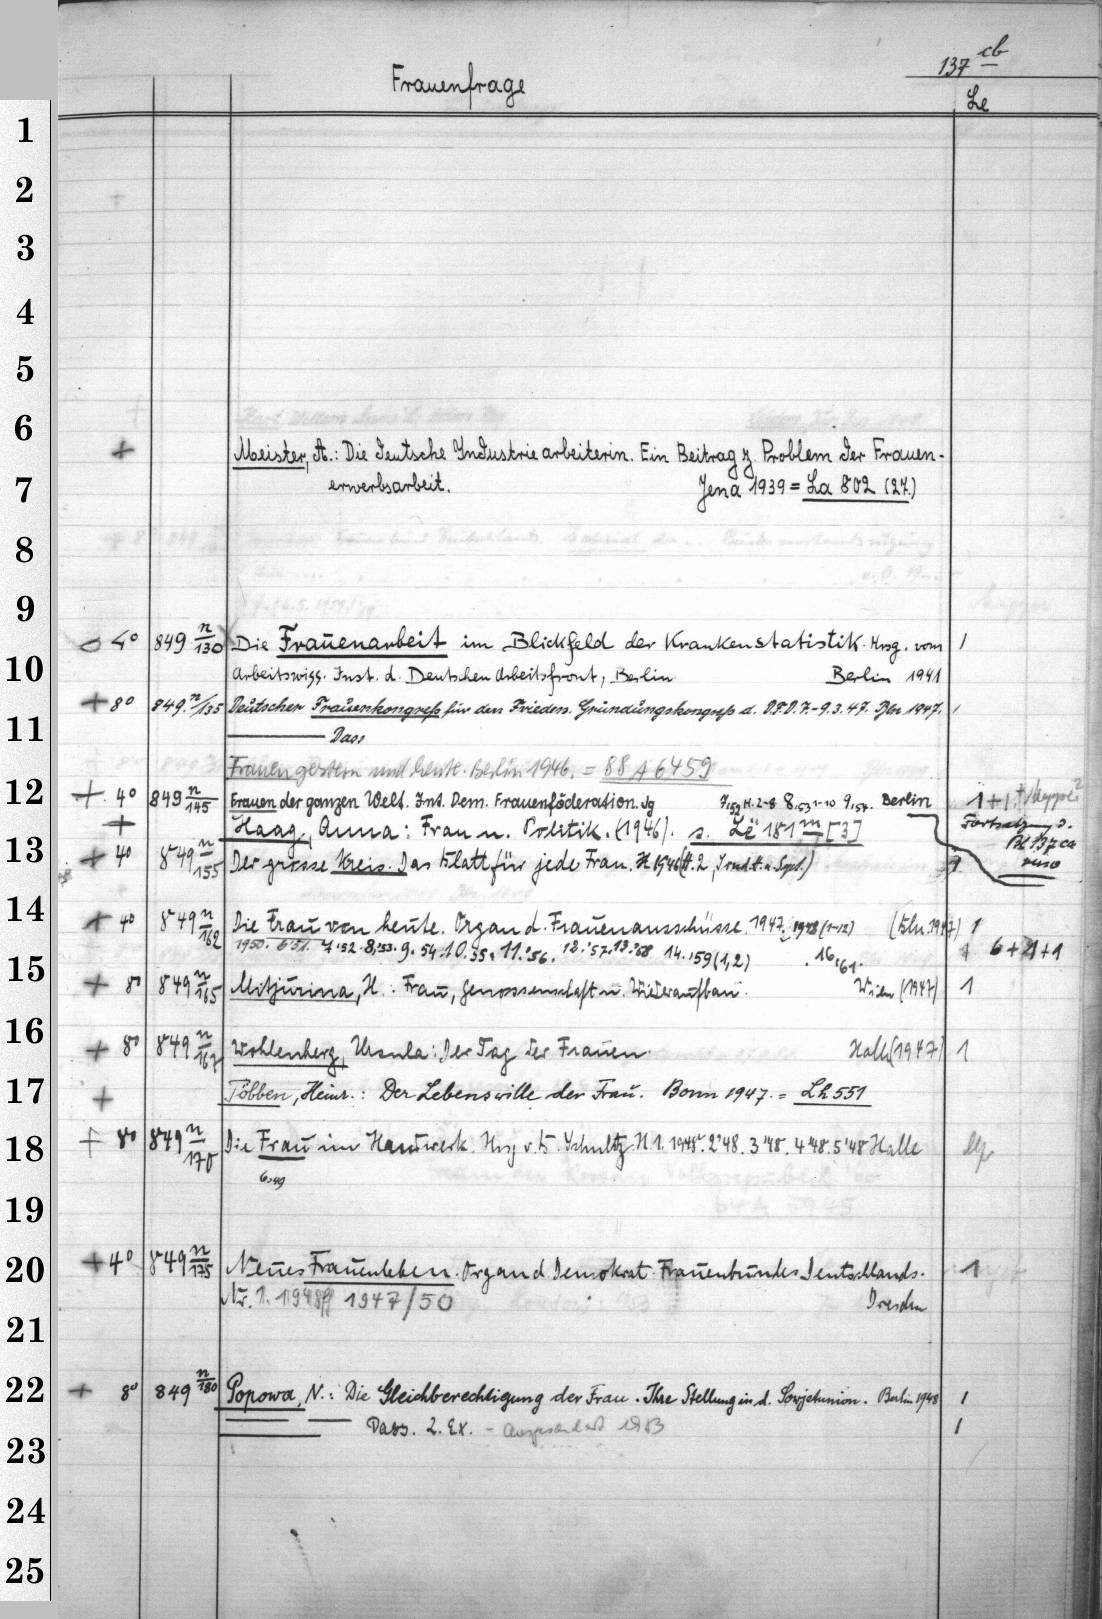 137 cb
Frauenfrage
Le
1
2
3
4
5
6
+ Meister, A.: Die deutsche Industriearbeiterin. Ein Beitrag z. Problem der Frauen-
7 erwerbsarbeit. Jena 1939 = La 802 (27.)
8
9
4° 849 n/130 Die Frauenarbeit im Blickfeld der Krankenstatistik. Hrsg. vom 1
10 Arbeitswiss. Inst. d. Deutschen Arbeitsfront, Berlin Berlin 1941
+ 8° 849 n/135 Deutscher Frauenkongreß für den Frieden. Gründungskongreß d. D.F.D. 7.-9.3.47. Bln 1947. 1
11 Dass
Frauen gestern und heute. Berlin 1946. = 88 A 6459
12 + 4° 849 n/145 Frauen der ganzen Welt. Int. Dem. Frauenföderation. Jg 7,52 H.2-8 8,53 1-10 9,54. Berlin 1+1
+ Haag, Anna: Frau u. Politik. (1946). s. Lë 181 m [3] Fortsetzg s.
Bl 137 ca
13 + 4° 849 n/155 Der grosse Kreis. Das Blatt für jede Frau. H 1946 (H. 2, 1
14 + 4° 849 n/162 Die Frau von heute. Organ d. Frauenausschüsse. 1947. 1948 (1-12) (Bln. 1947) 1
1950. 6'51. 7'52. 8,'53. 9.54. 10.55. 11.'56. 12.'57. 13.'58 14.'59 (1,2) . 16,'61. 6+1+1
15 + 8° 849 n/165 Mitjurina, H.: Frau, Genossenschaft u. Wiederaufbau. Wien (1947) 1
16 + 8° 849 n/167 Wohlenberg, Ursula: Der Tag der Frauen. Halle (1947) 1
17 + Többen, Heinr.: Der Lebenswille der Frau. Bonn 1947. = Lh 551
18 + 8° 849 n/170 Die Frau im Handwerk. Hrsg v. E. Schultz H 1. 1948. 2'48. 3'48. 4'48. 5'48 Halle
6.49
19
20 + 4° 849 n/175 Neues Frauenleben. Organ d. Demokrat. Frauenbundes Deutschlands. 1
Nr. 1. 1948ff 1947/50 Dresden
21
22 + 8° 849 n/180 Popowa, N.: Die Gleichberechtigung der Frau. Ihre Stellung in d. Sowjetunion. Berlin 1948 1
Dass. 2. Ex. - ausgesondert 1983 1
23
24
25